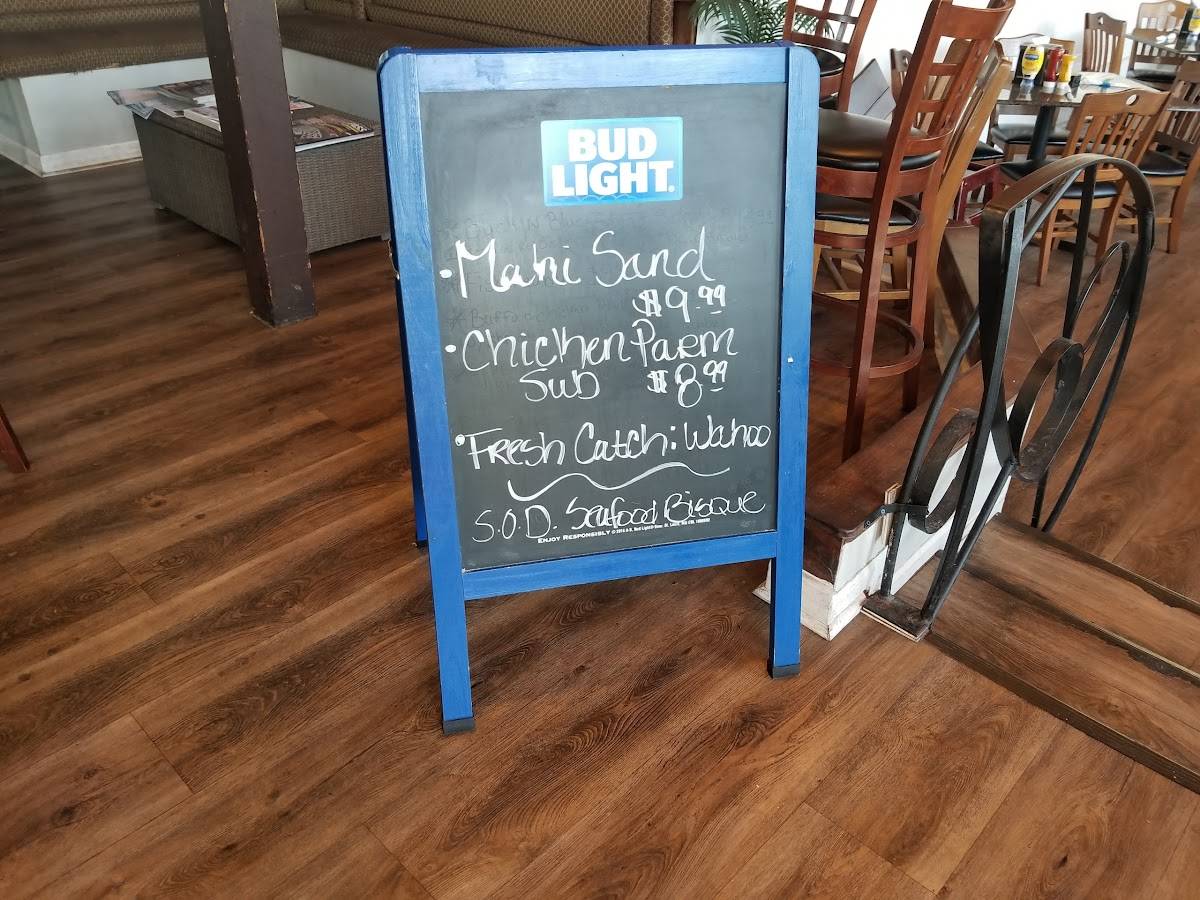 BUD
LIGHT
• Mahi Sand
$9.99
• Chicken Parm
Sub $8.99
• Fresh Catch: Wahoo
S.O.D. Seafood Bisque
ENJOY RESPONSIBLY